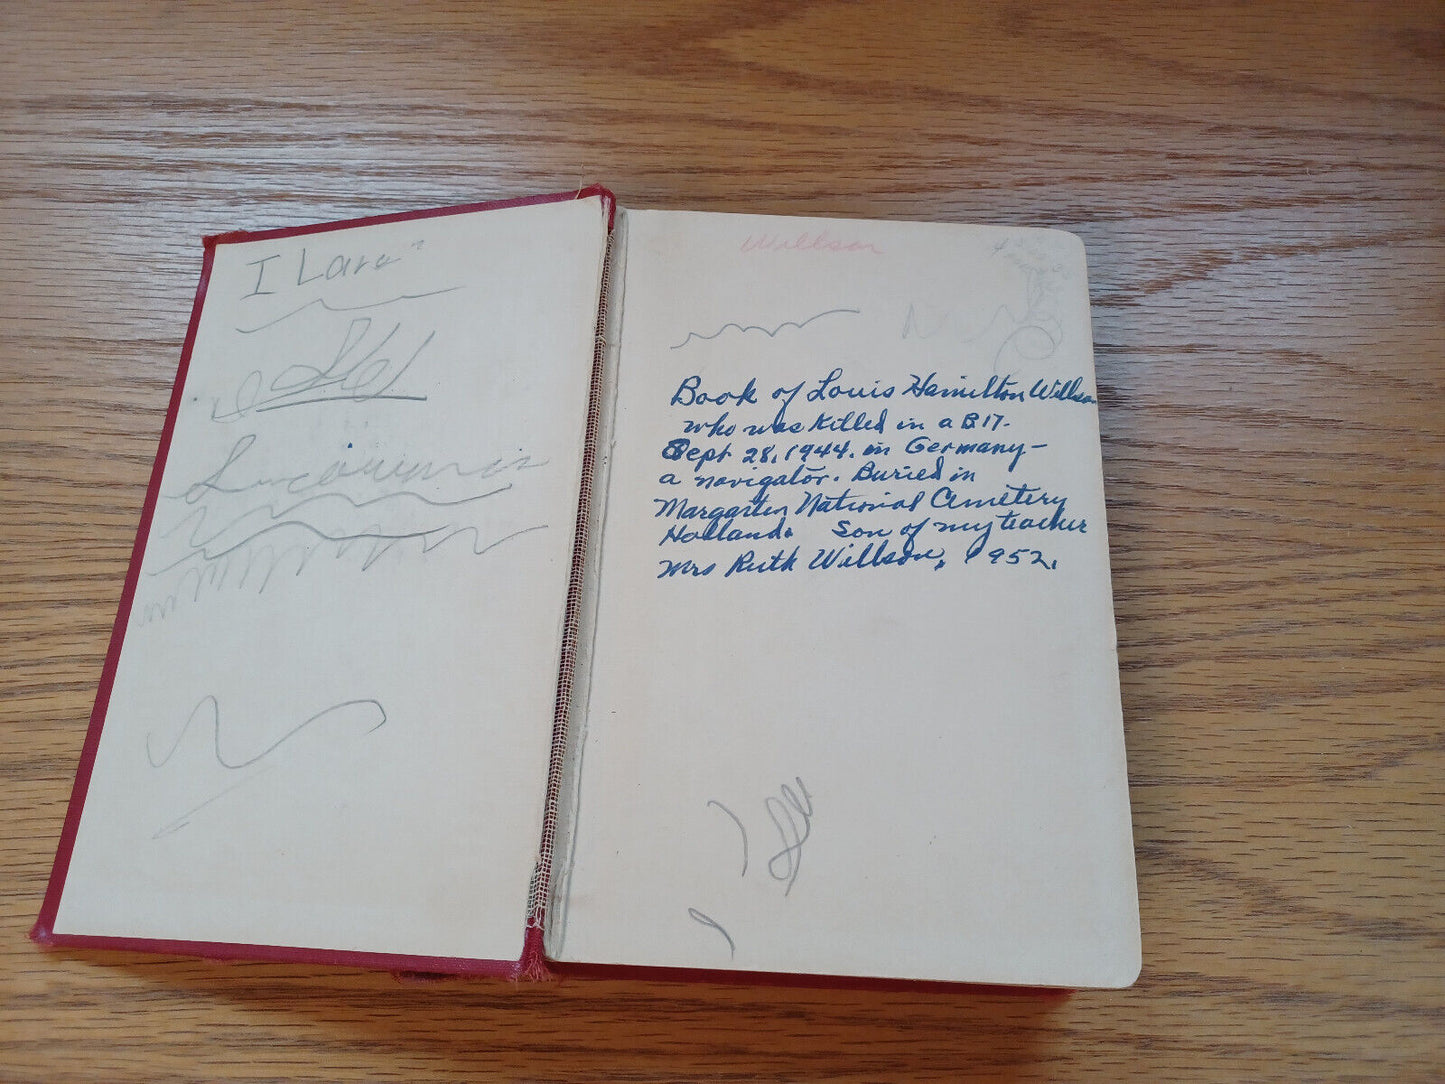 I Lara
Willson
Book of Louis Hamilton Willson
who was killed in a B17.
Sept 28, 1944. in Germany—
a navigator. Buried in
Margarten National Cemetery
Holland. Son of my teacher
Mrs Ruth Willson, 1952.